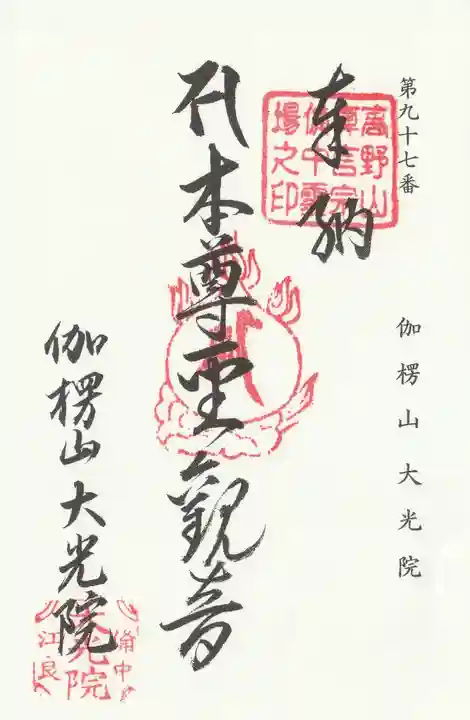 第九十七番
伽楞山大光院
奉納
高野山
真言宗
備中霊
場之印
本尊聖観音
伽楞山大光院
備中
大光院
江良